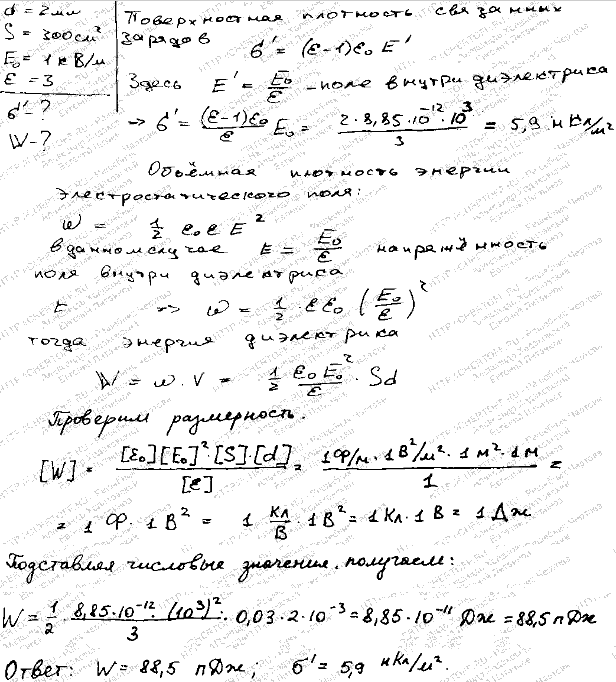 d = 2мм
S = 300см²
E₀ = 1кВ/м
ε = 3
σ' - ?
W - ?
Поверхностная плотность связанных
зарядов
σ' = (ε-1)ε₀ E'
Здесь E' = E₀/ε - поле внутри диэлектрика
→ σ' = (ε-1)ε₀/ε E₀ = 2·8,85·10⁻¹²·10³/3 = 5,9 нКл/м²
Объёмная плотность энергии
электростатического поля:
w = 1/2 ε₀ ε E²
в данном случае E = E₀/ε напряжённость
поля внутри диэлектрика
E => w = 1/2 · ε ε₀ (E₀/ε)²
тогда энергия диэлектрика
W = w · V = 1/2 ε₀ E₀²/ε · Sd
Проверим размерность.
[W] = [ε₀][E₀]²·[S]·[d]/[ε] = 1Ф/м · 1В²/м² · 1м² · 1м/1 =
= 1 Ф · 1 В² = 1 Кл/В · 1В² = 1 Кл · 1 В = 1 Дж
Подставляя числовые значения, получаем:
W = 1/2 · 8,85·10⁻¹² · (10³)²/3 · 0,03 · 2 · 10⁻³ = 8,85 · 10⁻¹¹ Дж = 88,5 пДж
Ответ: W = 88,5 пДж; σ' = 5,9 нКл/м².